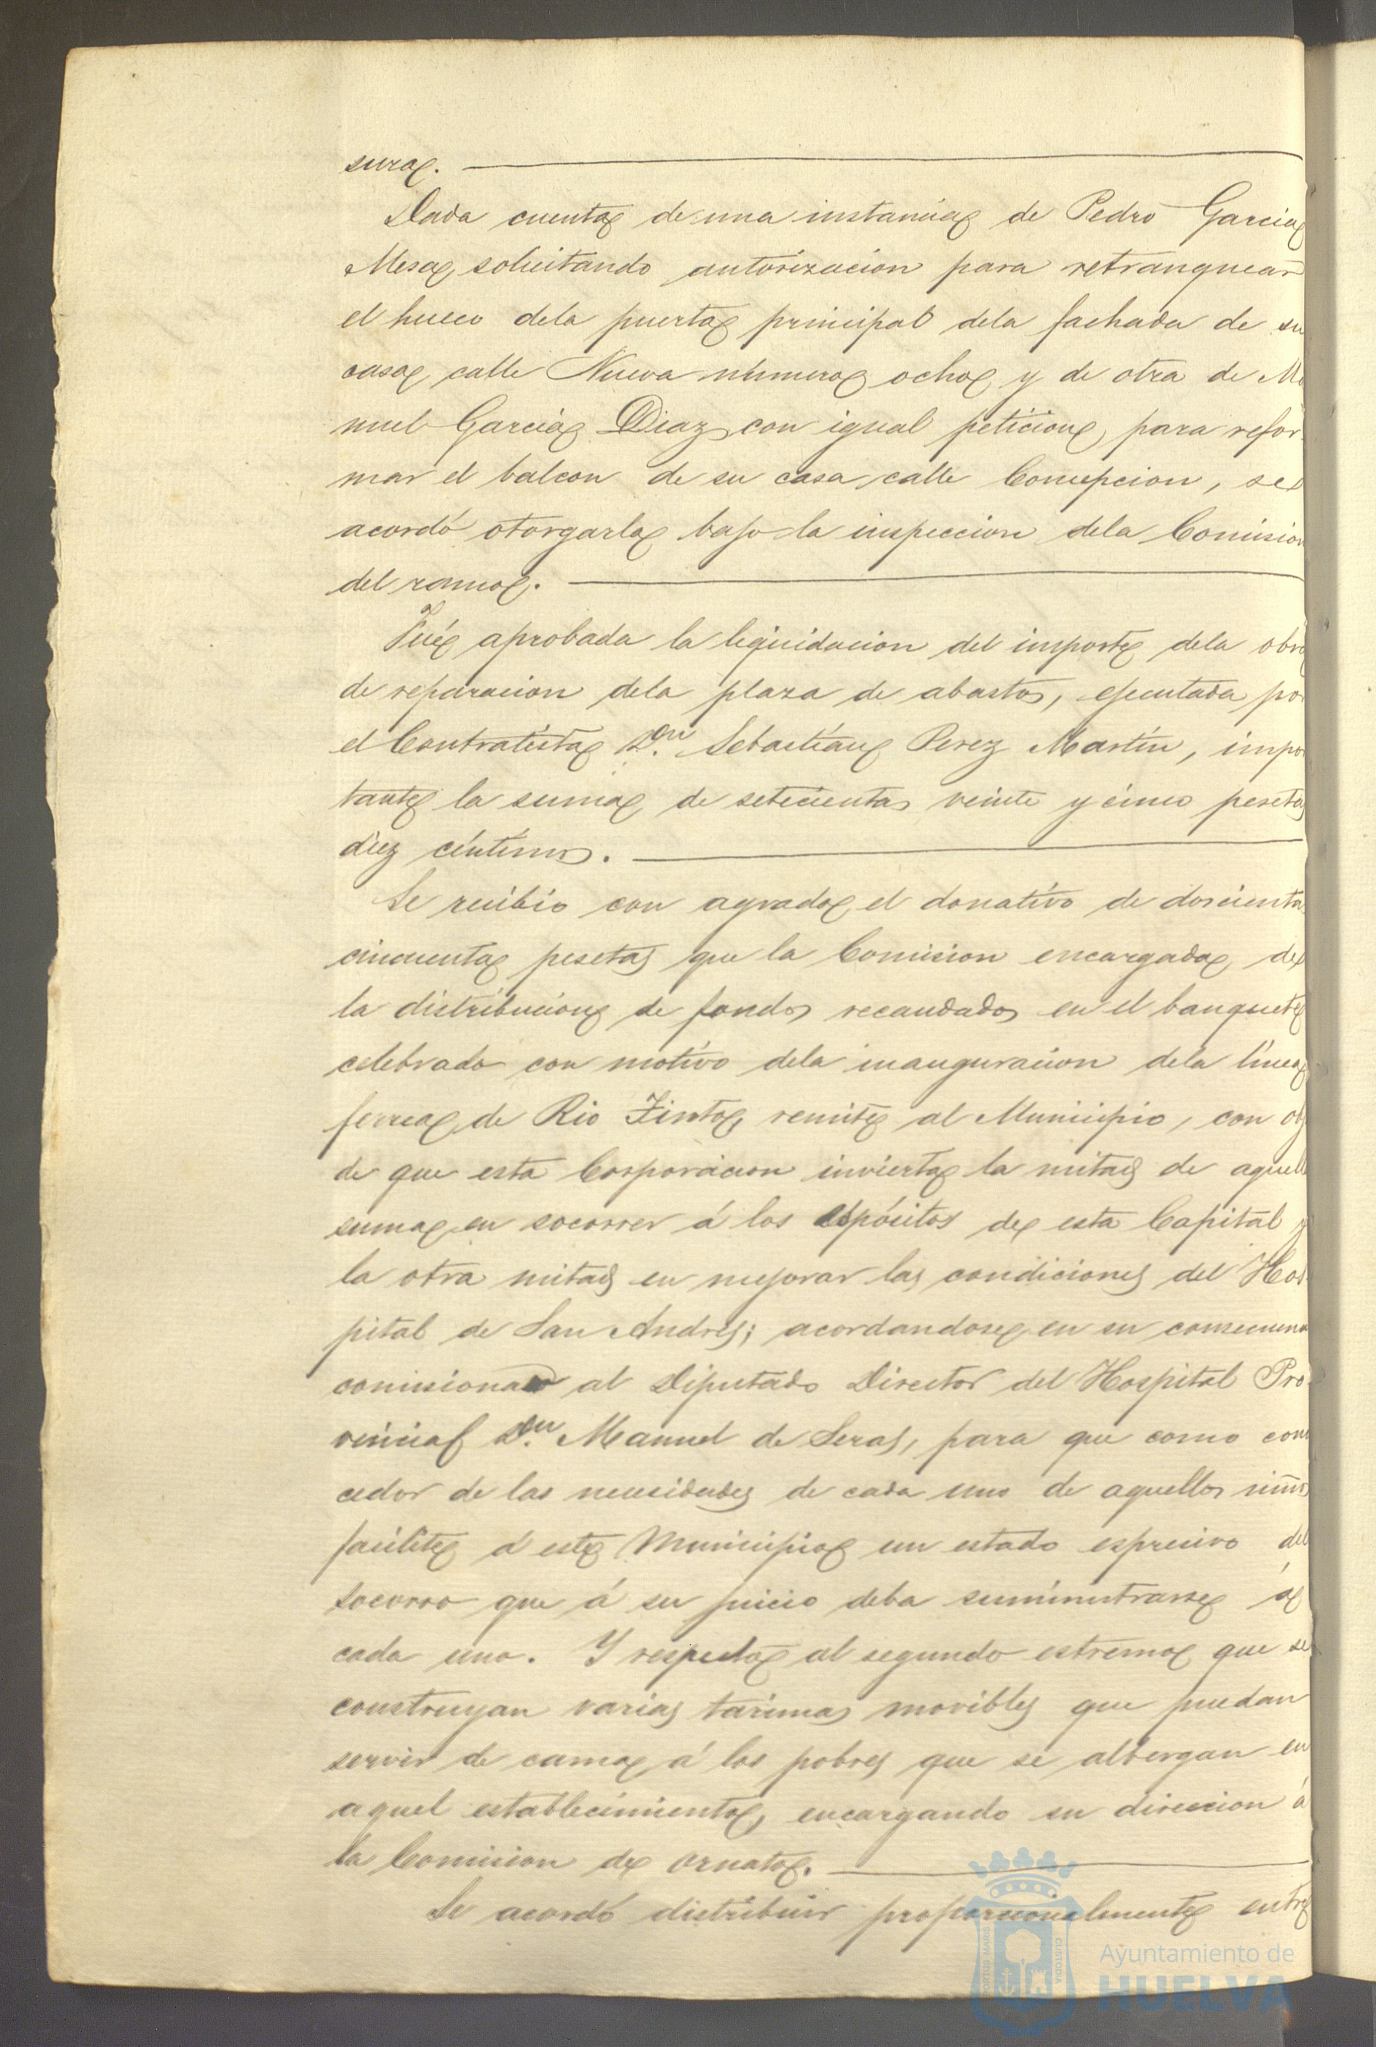 sura.
Dada cuenta de una instancia de Pedro Garcia
Mesa, solicitando autorizacion para retranquear
el hueco dela puerta principal dela fachada de su
casa, calle Nueva número ocho, y de otra de Ma
nuel Garcia Diaz, con igual peticion, para refor-
mar el balcon de su casa calle Concepcion, se
acordó otorgarla bajo la inspeccion dela Comision
del ramo.
Fué aprobada la liquidacion del importe dela obra
de reparacion dela plaza de abastos, ejecutada por
el Contratista Dn. Sebastian Perez Martín, impor
tante la suma de setecientas veinte y cinco pesetas
diez céntimos.
Se recibió con agrado, el donativo de doscientas
cincuenta pesetas que la Comision encargada, de
la distribucion de fondos recaudados en el banquete
celebrado con motivo dela inauguracion dela línea
ferrea, de Rio Tinto, remite al Municipio, con obj
de que esta Corporacion invierta la mitad de aquella
suma, en socorrer á los espósitos de esta Capital y
la otra mitad en mejorar las condiciones del Hos-
pital de San Andres; acordandose, en su consecuencia
comisionar al Diputado Director del Hospital Pro-
vincial Dn. Manuel de Seras, para que como cono
cedor de las necesidades de cada uno de aquellos niños
facilite á este Municipio un estado espresivo del
socorro que á su juicio deba suministrarse á
cada uno. Y respecto al segundo estremo, que se
construyan varias tarimas movibles que puedan
servir de cama á los pobres que se albergan en
aquel establecimiento, encargando su direccion á
la Comision de ornato.
Se acordó distribuir proporcionalmente entre
PORTUS MARIS
CUSTODIA
Ayuntamiento de
HUELVA